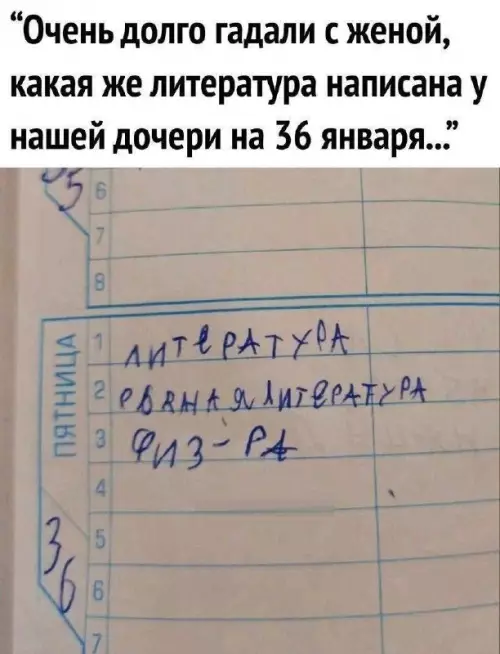 “Очень долго гадали с женой,
какая же литература написана у
нашей дочери на 36 января...”
35
6
7
8
ПЯТНИЦА
1 ЛИТЕРАТУРА
2 РВАНАЯ ЛИТЕРАТУРА
3 ФИЗ-РА
4
36
5
6
7